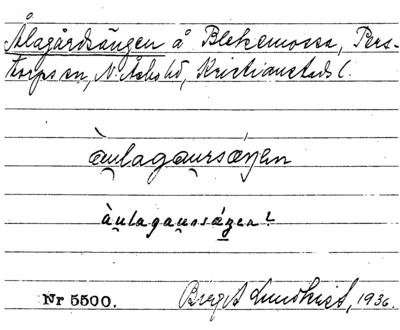 Ålagårdsängen å Blekemossa, Pers-
torps sn, N. Åsbo hd, Kristianstads l.
àu̯lagau̯rsæŋen
àu̯lagau̯rsæŋen?
Nr 5500. Birgit Lundkvist, 1936.